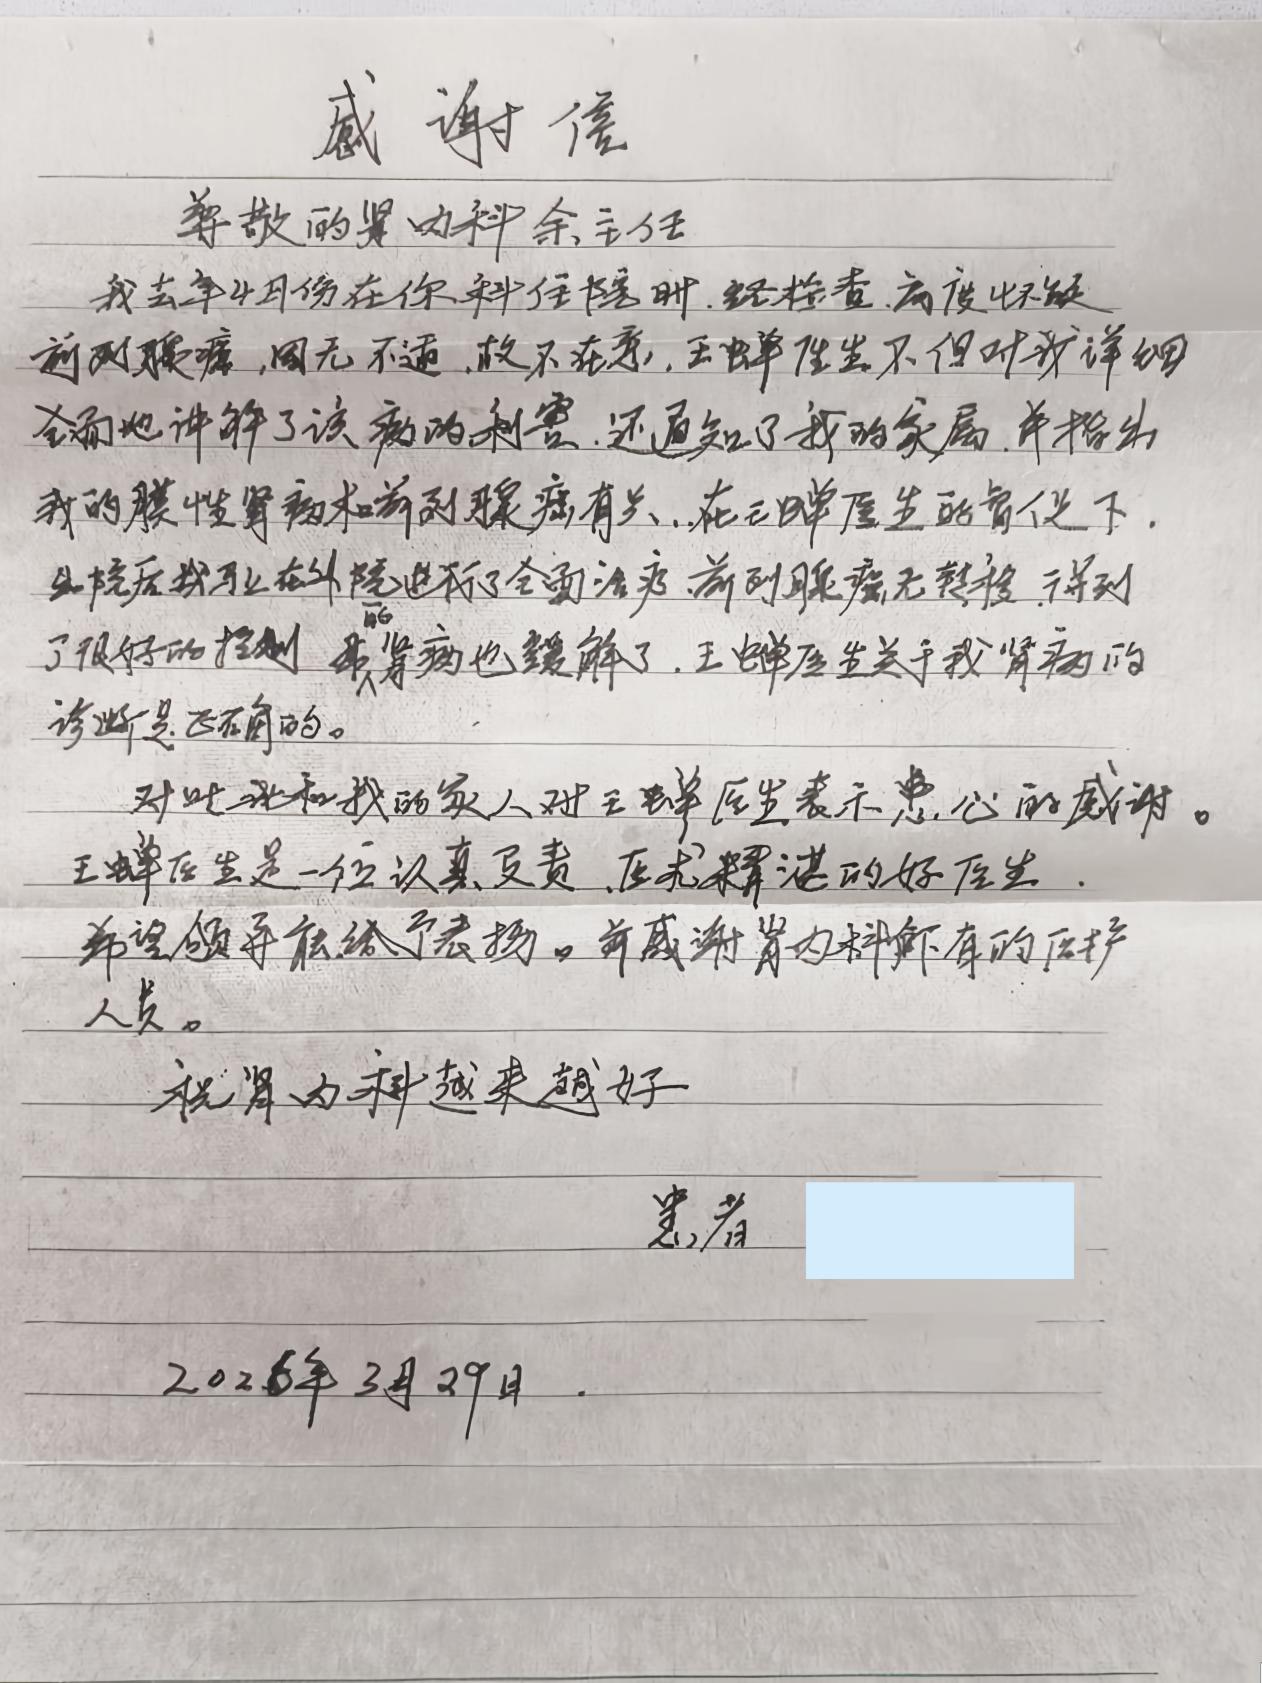 感谢信
尊敬的肾内科余主任
我去年4月份在你科住院时.经检查.高度怀疑
前列腺癌,因无不适,故不在意,王蝉医生不但对我详细
全面地讲解了该病的利害.还通知了我的家属.并指出
我的膜性肾病和前列腺癌有关,.在王蝉医生的督促下.
出院后我马上在外院进行了全面治疗.前列腺癌无转移,得到
了很好的控制 我的肾病也缓解了.王蝉医生关于我肾病的
诊断是正确的。
对此我和我的家人对王蝉医生表示衷心的感谢。
王蝉医生是一位认真负责,医术精湛的好医生.
希望领导能给予表扬。并感谢肾内科所有的医护
人员。
祝肾内科越来越好
患者
2026年3月29日.